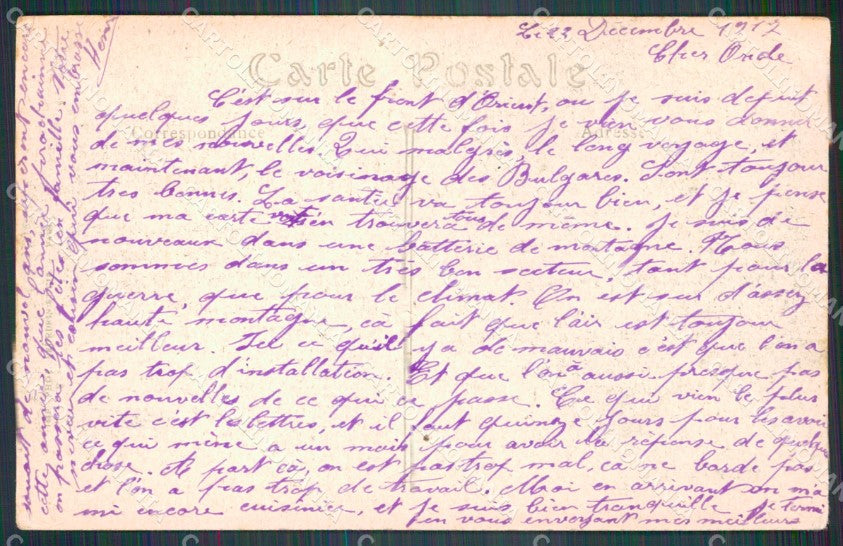 Le 23 Décembre 1917
Cher Onde
Carte Postale
Correspondance
Adresse
C'est sur le front d'Orient, ou je suis depuit
quelques jours, que cette fois je vien vous donner
de mes nouvelles. Qui malgrès, le long voyage, et
maintenant, le voisinage des Bulgares. Sont toujour
tres bonnes. La santée va toujour bien, et je pense
que ma carte vous en trouvera tous de même. Je suis de
nouveaux dans une batterie de montagne. Nous
sommes dans un très bon secteur, tant pour la
guerre, que pour le climat. On est sur d'assez
haute montagne, ca fait que l'air est toujour
meilleur. Ici ce qu'il y a de mauvais c'est que l'on a
pas trop d'installation. Et que l'on a aussi presque pas
de nouvelles de ce qui ce passe. Ce que vien le plus
vite c'est les lettres, et il faut quinze jours pour les avoir
ce qui mène a un mois pour avoir la réponse de quelque
chose. A part ca, on est pas trop mal, ca ne barde pas
et l'on a pas trop de travail. Moi en arrivant on m'a
mi encore cuisinier, et je suis bien tranquille. Je termi
en vous envoyant mes meilleurs
souait de nouvel ans, espéront encore
cette année que l'année prochainne
on passera les fêtes en famille. Votre
neveu et cousin qui vous embrasse
Henri